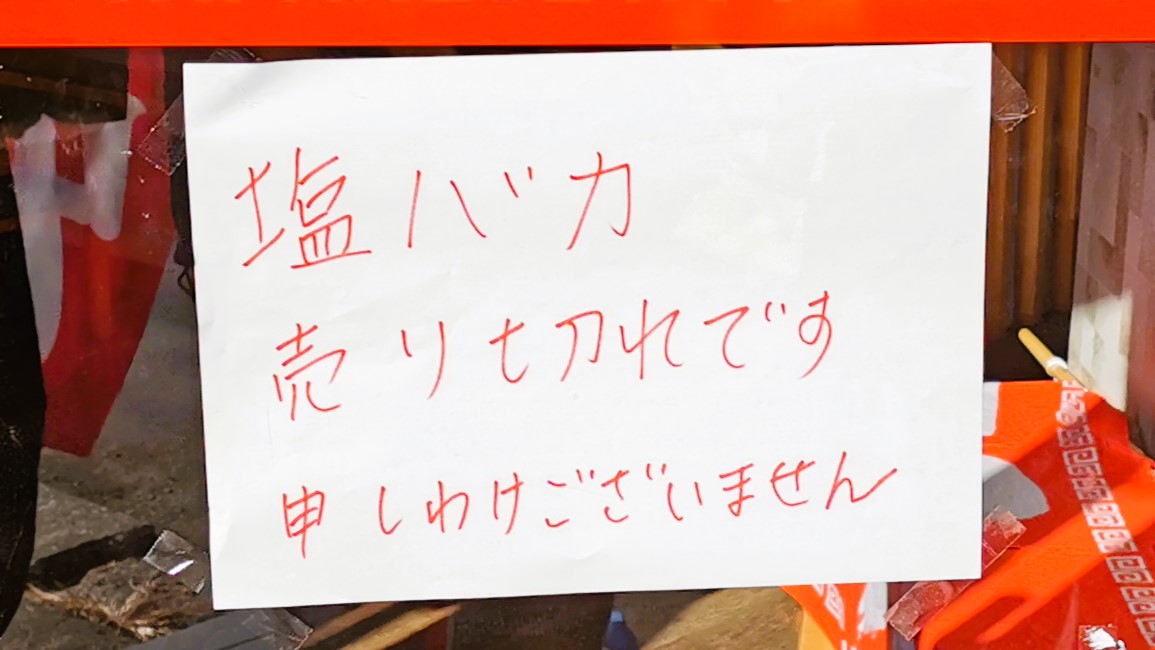 塩バカ
売り切れです
申しわけございません